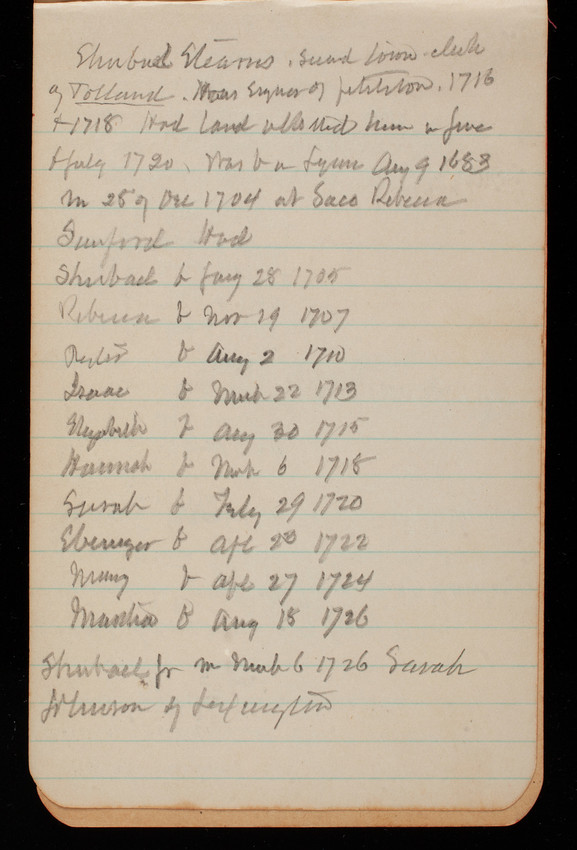 Shubael Stearns. Second town clerk
of Tolland. Was Signer of petition. 1716
+ 1718 Had land allotted him in June
+ July 1720. Was b in Lynn Aug 9 1683
m 28 of Dec 1704 at Saco Rebecca
Sanford Had
Shubael b Jany 28 1705
Rebecca b Nov 19 1707
Peter b Aug 2 1710
Isaac b Mch 22 1713
Elizabeth b Aug 30 1715
Hannah b Mch 6 1718
Sarah b July 29 1720
Ebenezer b Apl 28 1722
Mary b Apl 27 1724
Martha b Aug 18 1726
Shubael Jr m Mch 6 1726 Sarah
Johnson of Lexington